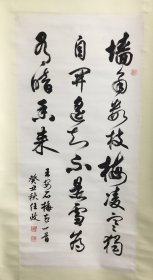 墙角数枝梅凌寒独
自开遥知不是雪为
有暗香来
王安石梅花一首
癸丑秋任政